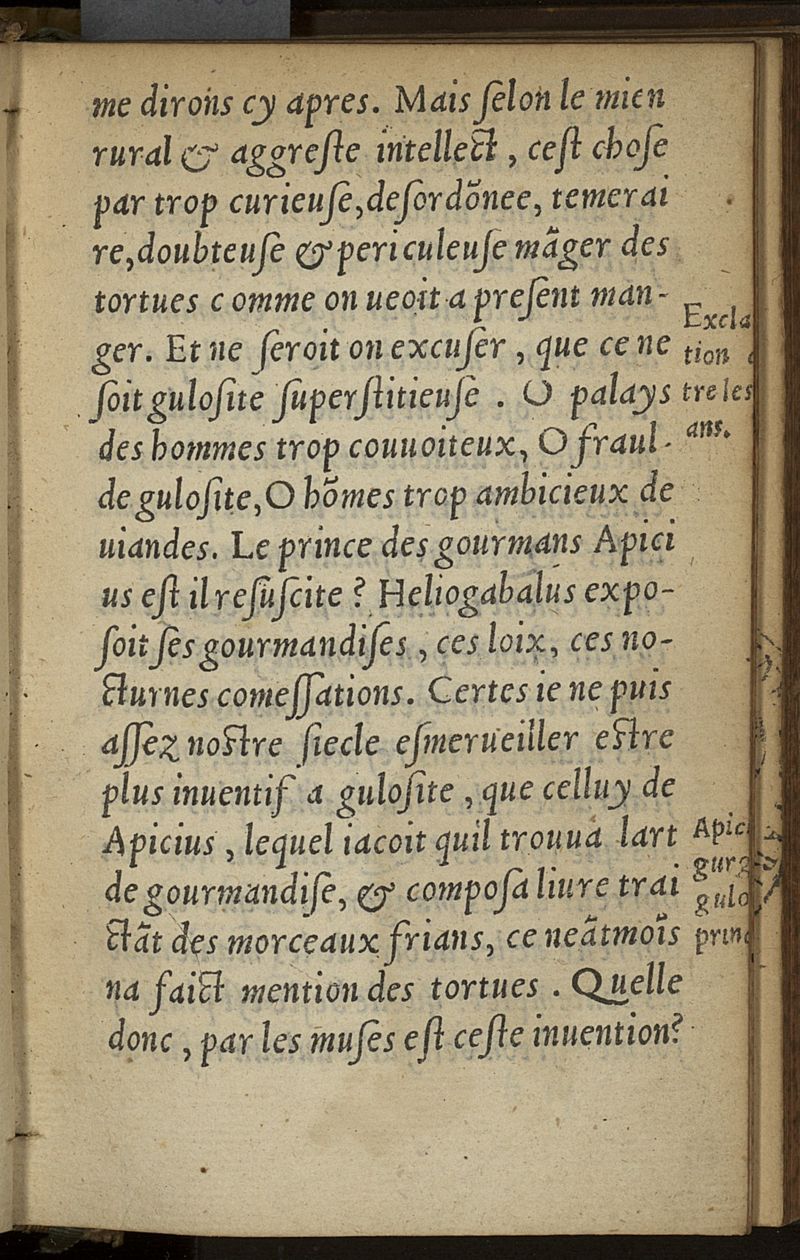 me dirons cy apres. Mais ſelon le mien
rural & aggreſte intellect, ceſt choſe
par trop curieuſe, deſordõnee, temerai
re, doubteuſe & periculeuſe mãger des
tortues c omme on ueoit a preſent man-
ger. Et ne ſeroit on excuſer, que ce ne
ſoit guloſite ſuperſtitieuſe. O palays
des hommes trop couuoiteux, O fraul-
de guloſite, O hõmes trop ambicieux de
uiandes. Le prince des gourmans Apici
us eſt il reſuſcite? Heliogabalus expo-
ſoit ſes gourmandiſes, ces loix, ces no-
cturnes comeſſations. Certes ie ne puis
aſſez noſtre ſiecle eſmerueiller eſtre
plus inuentif a guloſite, que celluy de
Apicius, lequel iacoit quil trouua lart
de gourmandiſe, & compoſa liure trai
ctãt des morceaux frians, ce neãtmoĩs
na faict mention des tortues. Quelle
donc, par les muſes eſt ceſte inuention?
Excla
tion
tre les
ans.
Apic
gurg
gulo
prin